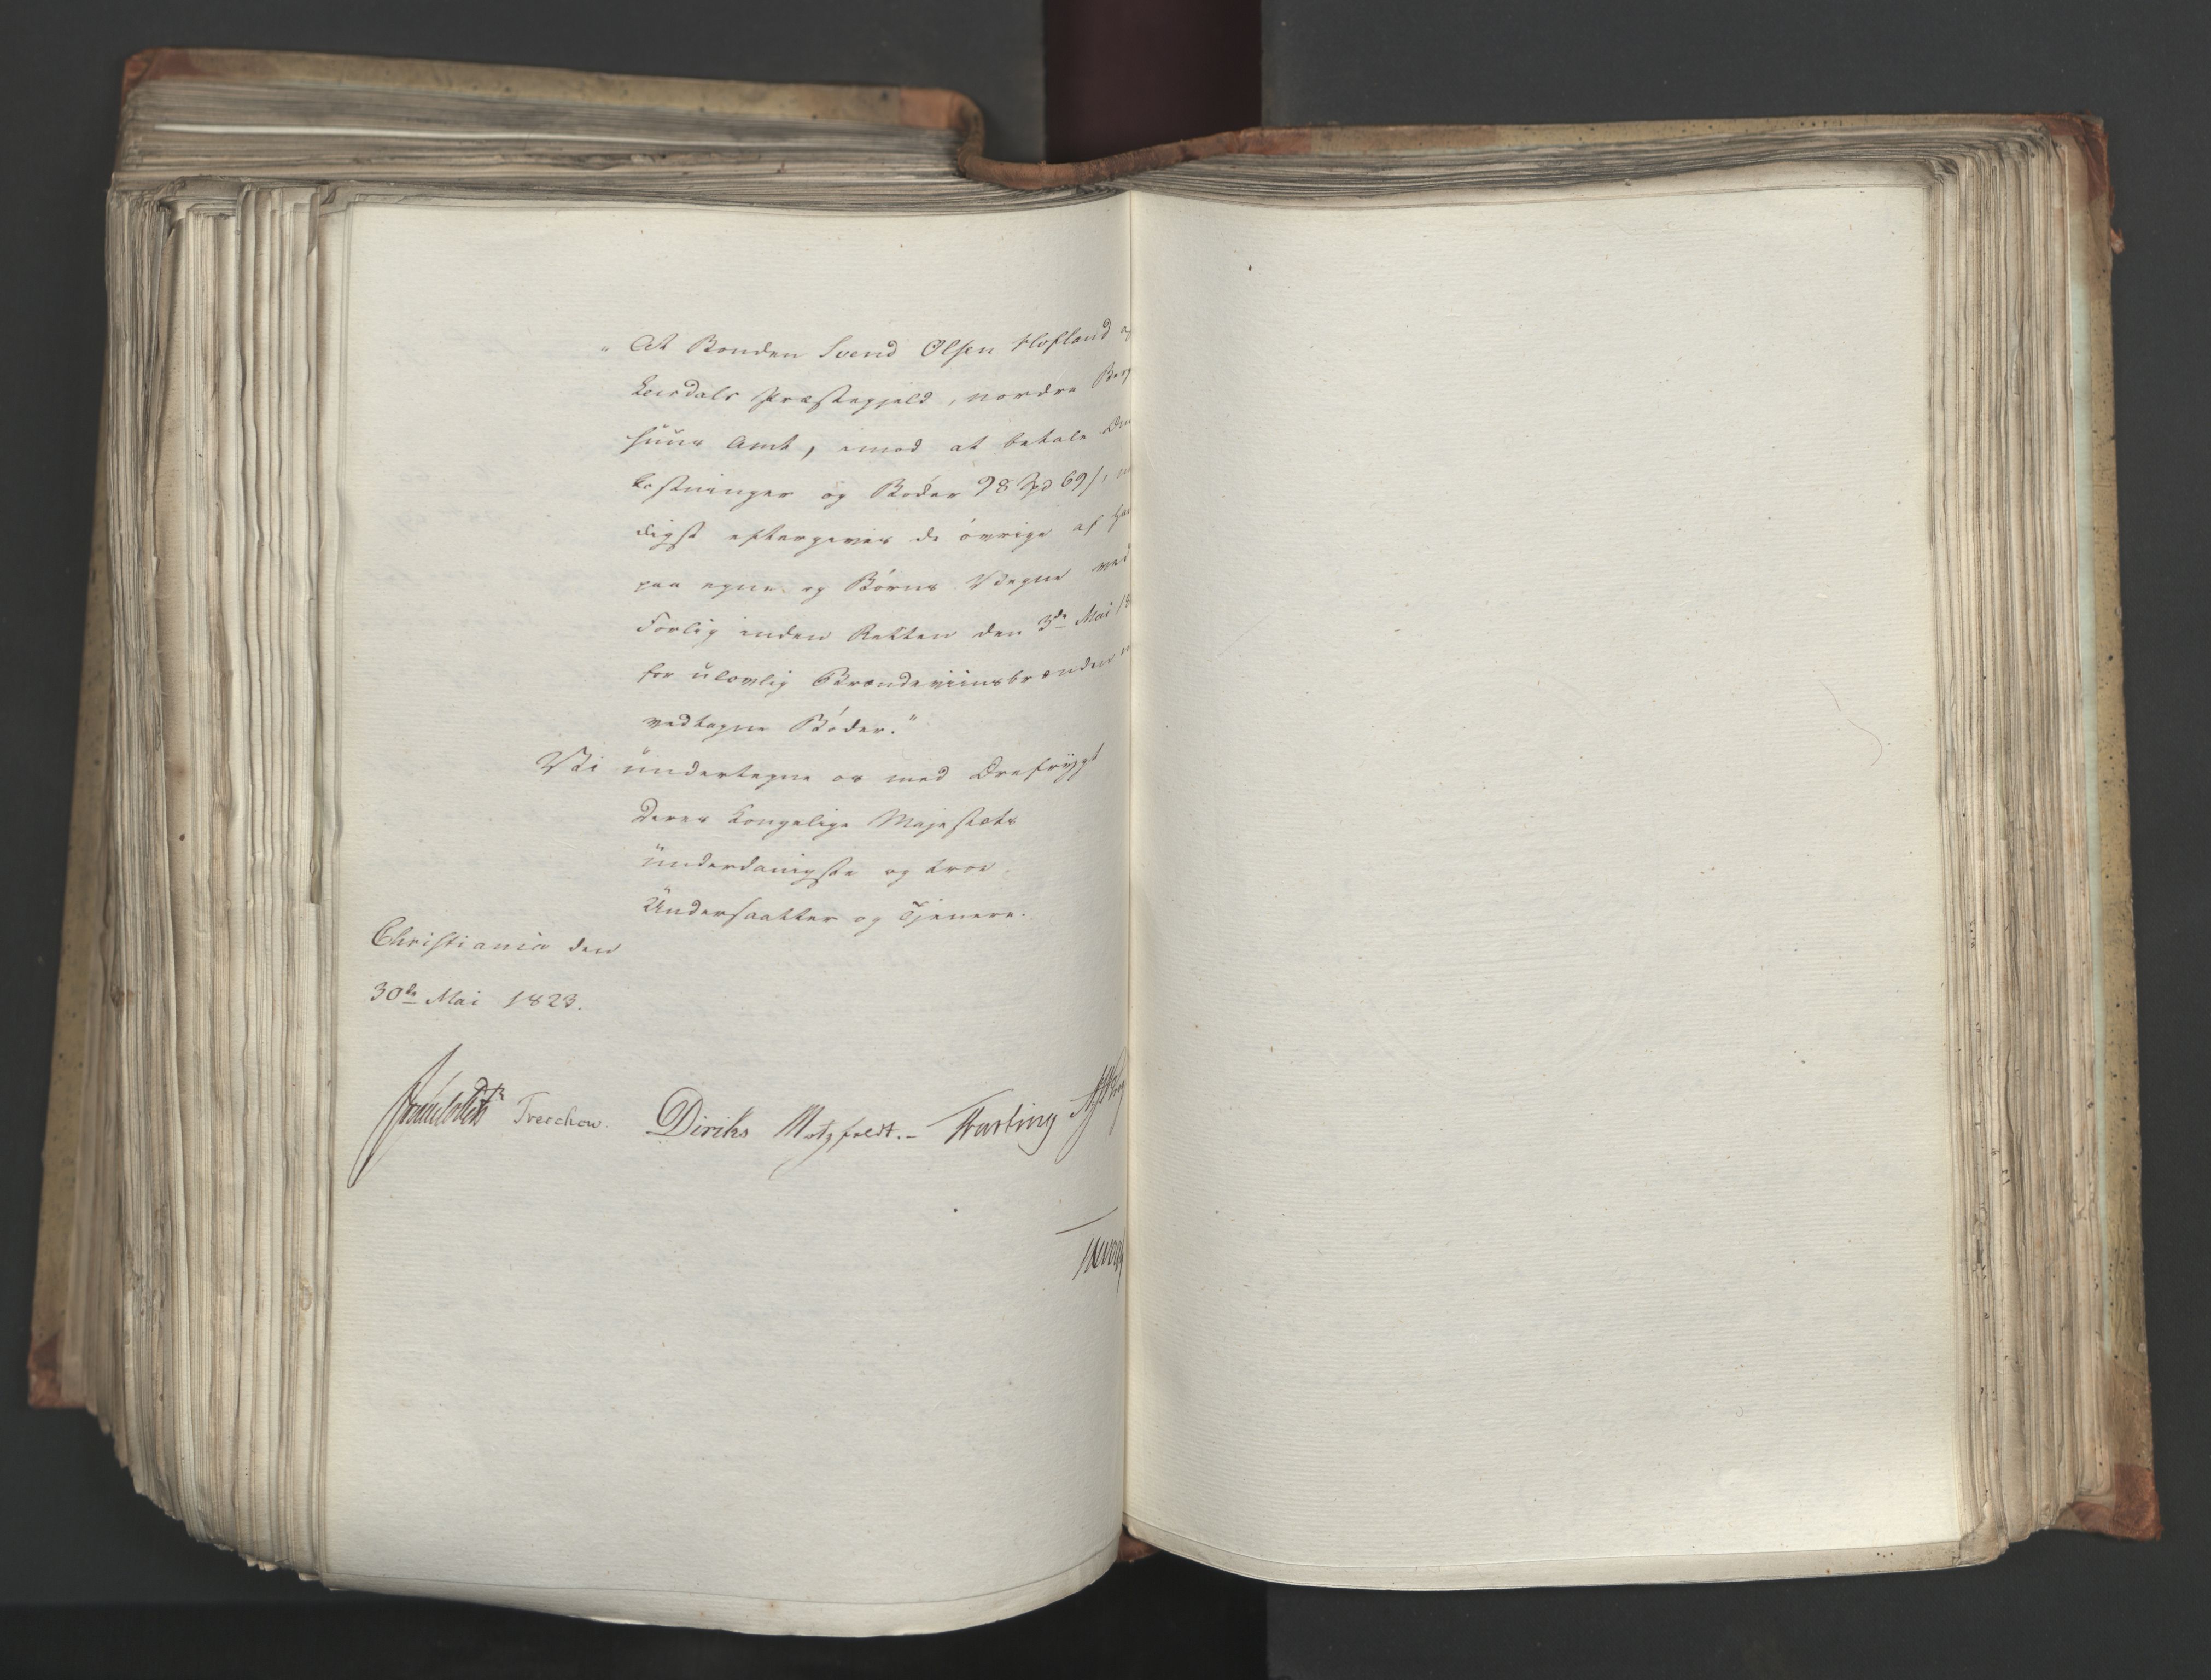 "At Bonden Svend Olsen Hofland
Leirdals Præstegjeld, nordre Berg
huus Amt, imod at betale Om
kostninger og Bøder 98 Spd 69 s,
digst eftergives de øvrige af
paa egne og Børns Vegne ved
Forlig inden Retten den 3de Mai 18
for ulovlig Brændeviinsbrænden
vedtagne Bøder."
Vi undertegne os med Ærefrygt
Deres Kongelige Majestæts
underdanigste og troe
Undersaatter og Tjenere.
Christiania den
30te Mai 1823.
Treschow. Diriks Motzfeldt.